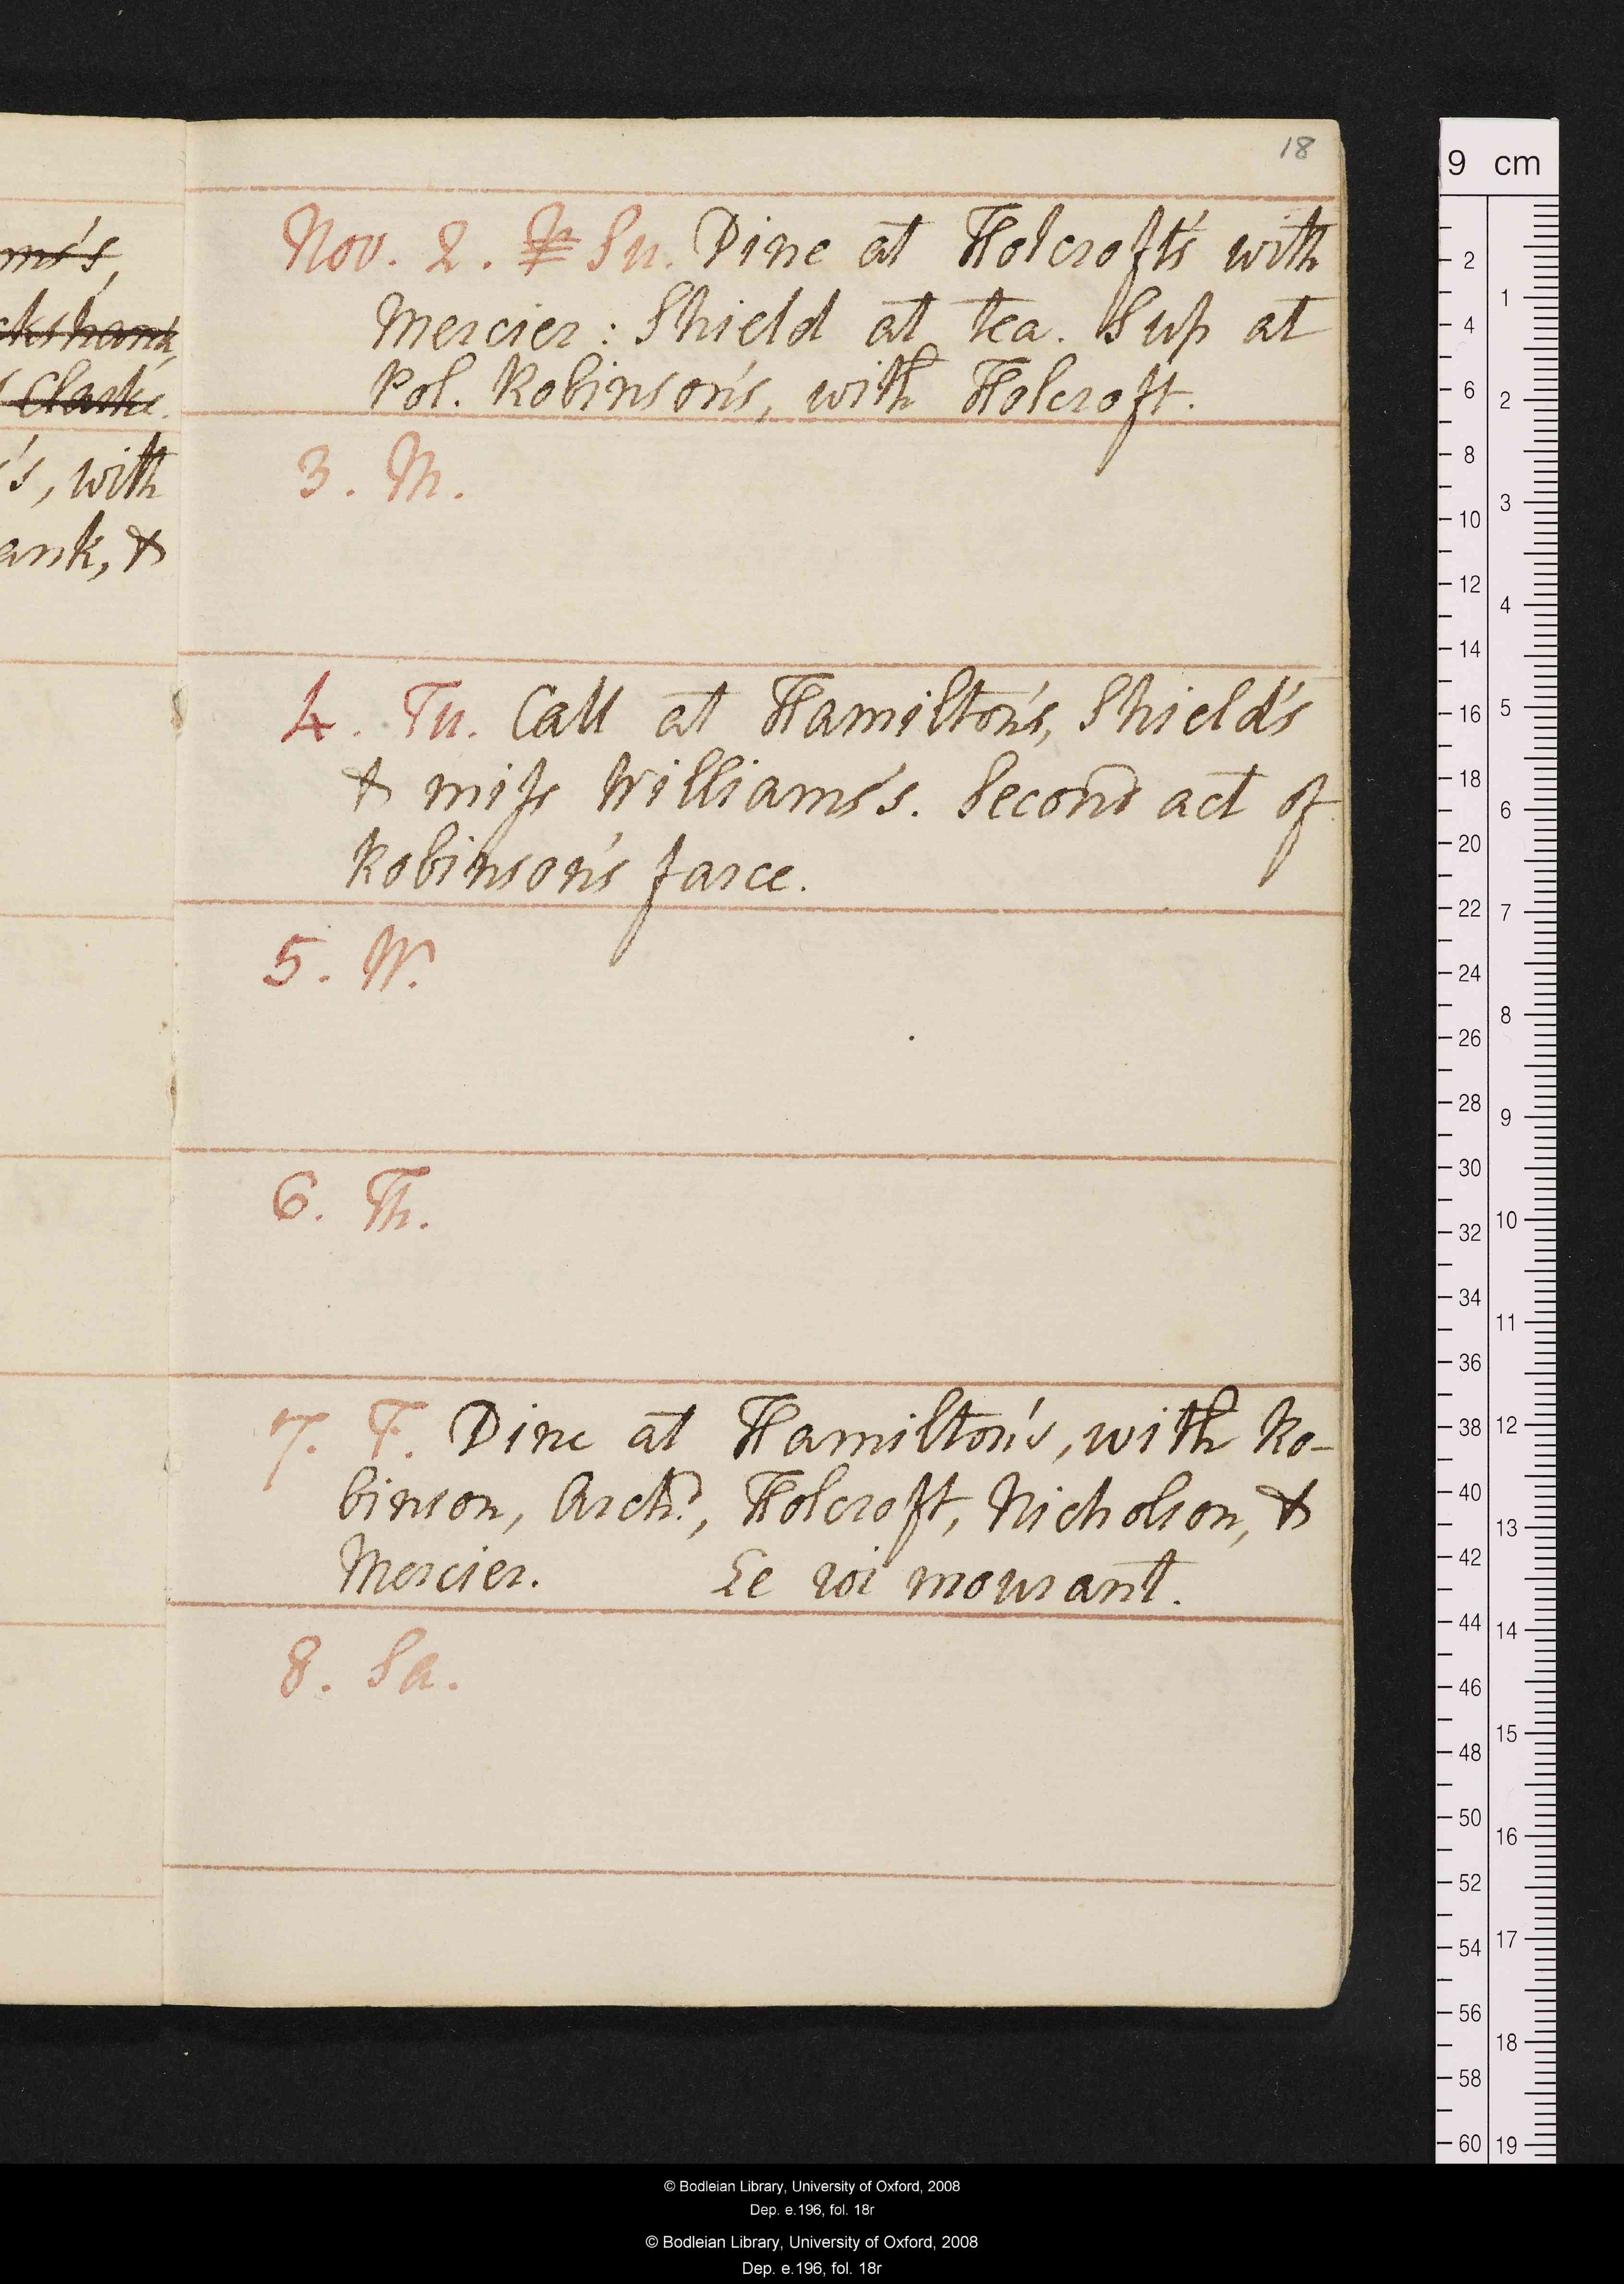 ms's,
ckshank,
Clarke.
's, with
ank, &
18
Nov. 2. Su. Dine at Holcroft's with
Mercier: Shield at tea. Sup at
Pol. Robinson's, with Holcroft.
3. M.
4. Tu. Call at Hamilton's, Shield's
& miss Williams's. Second act of
Robinson's farce.
5. W.
6. Th.
7. F. Dine at Hamilton's, with Ro-
binson, Archd, Holcroft, Nicholson, &
Mercier. Le roi mourant.
8. Sa.
9 cm
2
4
6
8
10
12
14
16
18
20
22
24
26
28
30
32
34
36
38
40
42
44
46
48
50
52
54
56
58
60
1
2
3
4
5
6
7
8
9
10
11
12
13
14
15
16
17
18
19
© Bodleian Library, University of Oxford, 2008
Dep. e.196, fol. 18r
© Bodleian Library, University of Oxford, 2008
Dep. e.196, fol. 18r